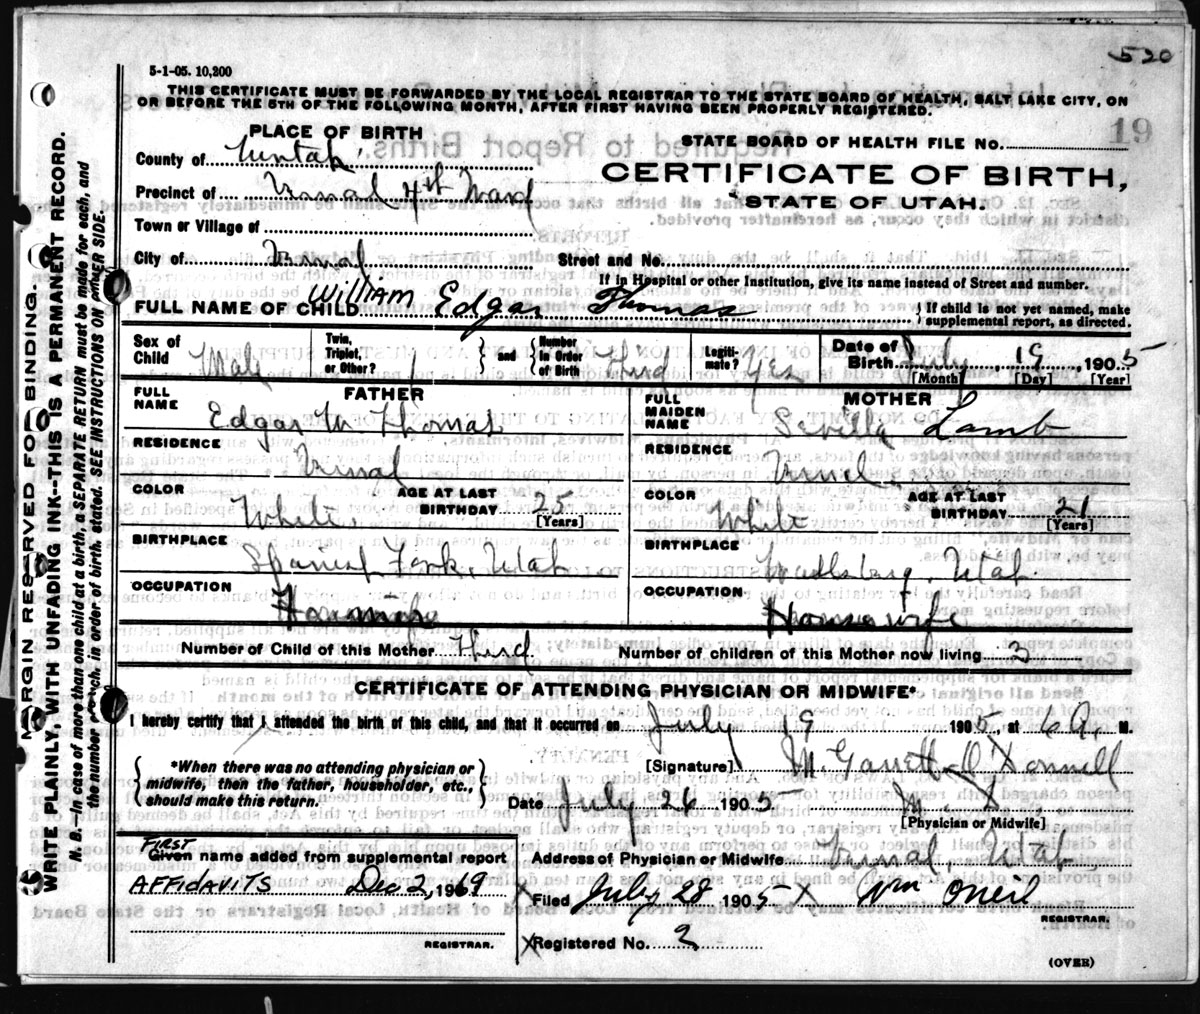 520
5-1-05. 10,200
THIS CERTIFICATE MUST BE FORWARDED BY THE LOCAL REGISTRAR TO THE STATE BOARD OF HEALTH, SALT LAKE CITY, ON
OR BEFORE THE 5TH OF THE FOLLOWING MONTH, AFTER FIRST HAVING BEEN PROPERLY REGISTERED.
19
PLACE OF BIRTH
County of Uintah
Precinct of Vernal 4th Ward
Town or Village of
City of Vernal
STATE BOARD OF HEALTH FILE No.
CERTIFICATE OF BIRTH,
STATE OF UTAH.
Street and No.
If in Hospital or other Institution, give its name instead of Street and number.
FULL NAME OF CHILD William Edgar Thomas
{ If child is not yet named, make supplemental report, as directed.
Sex of Child Male
Twin, Triplet, or Other?
} and { Number in Order of Birth Third
Legitimate? Yes
Date of Birth July 19, 1905
[Month] [Day] [Year]
FATHER
FULL NAME Edgar W Thomas
RESIDENCE Vernal
COLOR White
AGE AT LAST BIRTHDAY 25 [Years]
BIRTHPLACE Spanish Fork, Utah
OCCUPATION
MOTHER
FULL MAIDEN NAME Sevilla Lamb
RESIDENCE Vernal
COLOR White
AGE AT LAST BIRTHDAY 21 [Years]
BIRTHPLACE Wallsburg, Utah
OCCUPATION Housewife
Number of Child of this Mother Third Number of children of this Mother now living 3
CERTIFICATE OF ATTENDING PHYSICIAN OR MIDWIFE*
I hereby certify that I attended the birth of this child, and that it occurred on July 19 1905, at 6 A. M.
{ *When there was no attending physician or midwife, then the father, householder, etc., should make this return. }
[Signature] M. Garrett O'Donnell
Date July 26 1905 M. D.
[Physician or Midwife]
Address of Physician or Midwife Vernal, Utah
FIRST
Given name added from supplemental report
AFFIDAVITS Dec 2, 1969
REGISTRAR.
X Filed July 28 1905 X Wm Oneil
REGISTRAR.
X Registered No. 2
(OVER)
MARGIN RESERVED FOR BINDING.
WRITE PLAINLY, WITH UNFADING INK--THIS IS A PERMANENT RECORD.
N. B.--In case of more than one child at a birth, a SEPARATE RETURN must be made for each, and
the number each, in order of birth, stated. SEE INSTRUCTIONS ON OTHER SIDE.